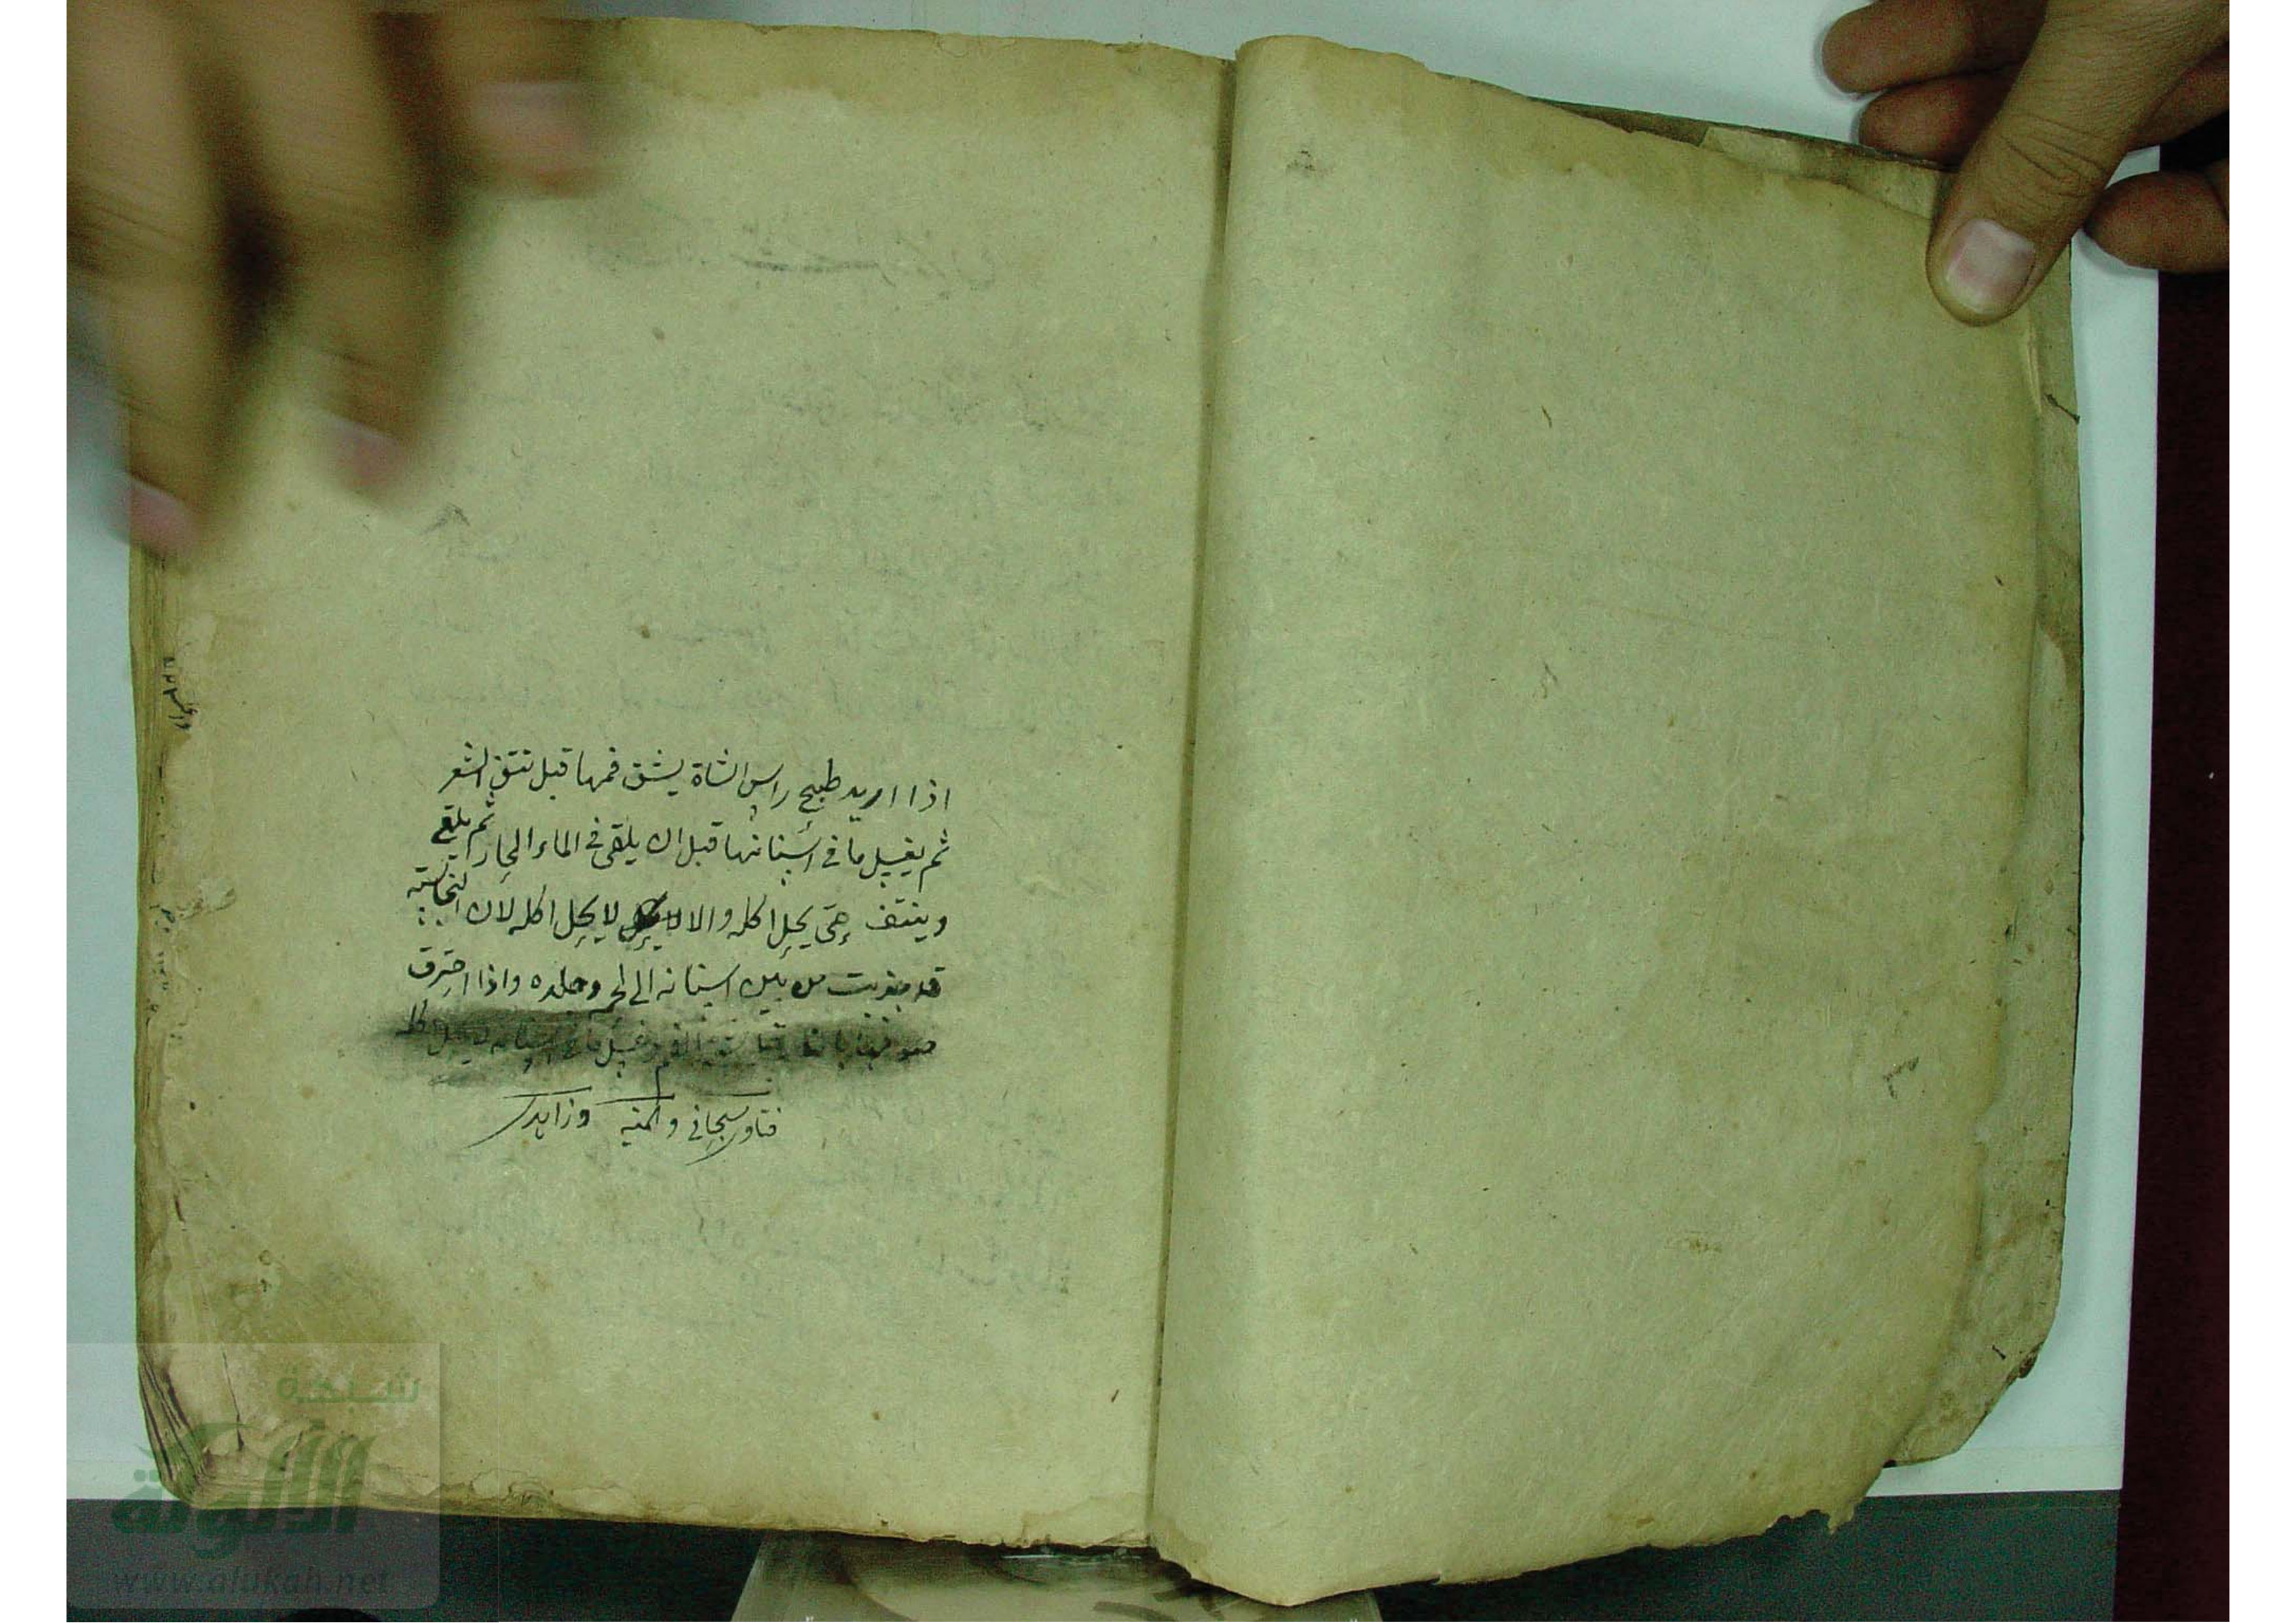 اذا اريد طبخ راس الشاة يشق فمها قبل نتف الشعر
ثم يغسل ما في اسنانها قبل ان يلقى في الماء الحار ثم يلقى
وينتف حتى يحل اكله والا لا يحل اكله لان النجاسة
قد جذبت من بين اسنانه الى لحم وجلده واذا احترق
الفم غسل ما في اسنانه يحل اكله
فتاوى سيحاني والمنيه وزاهدى
شبكة
الألوكة
www.alukah.net